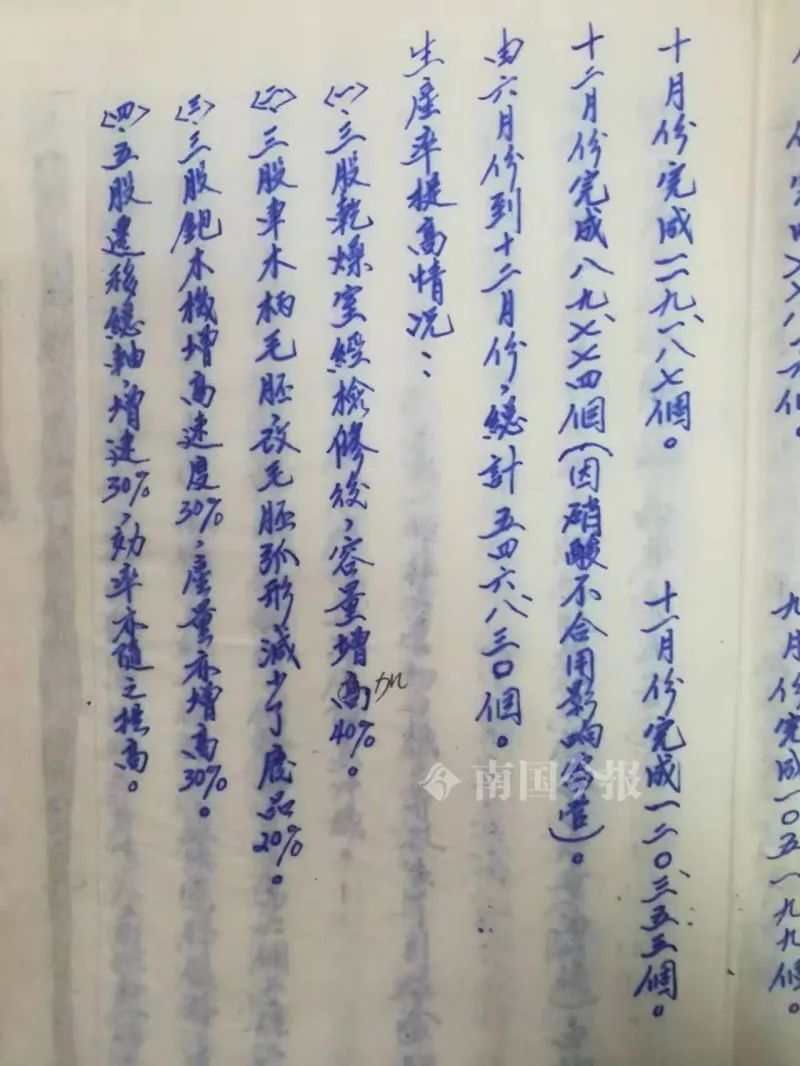 份完成
九月份完成一〇五一九九個。
十月份完成一二九、一八七個。
十一月份完成一二〇、三五五個。
十二月份完成八九、七七四個(因硝酸不合用影响)。
由六月份到十二月份，總計五四六、八三〇個。
生產率提高情况：
〈一〉、三股乾燥室經檢修後，容量增高加40%。
〈二〉、三股車木柄毛胚，改毛胚弧形減少了廢品20%。
〈三〉、三股鉋木機增高速度30%，產量亦增高30%。
〈四〉、五股遷移總軸，增速30%，効率亦隨之提高。
南国今报